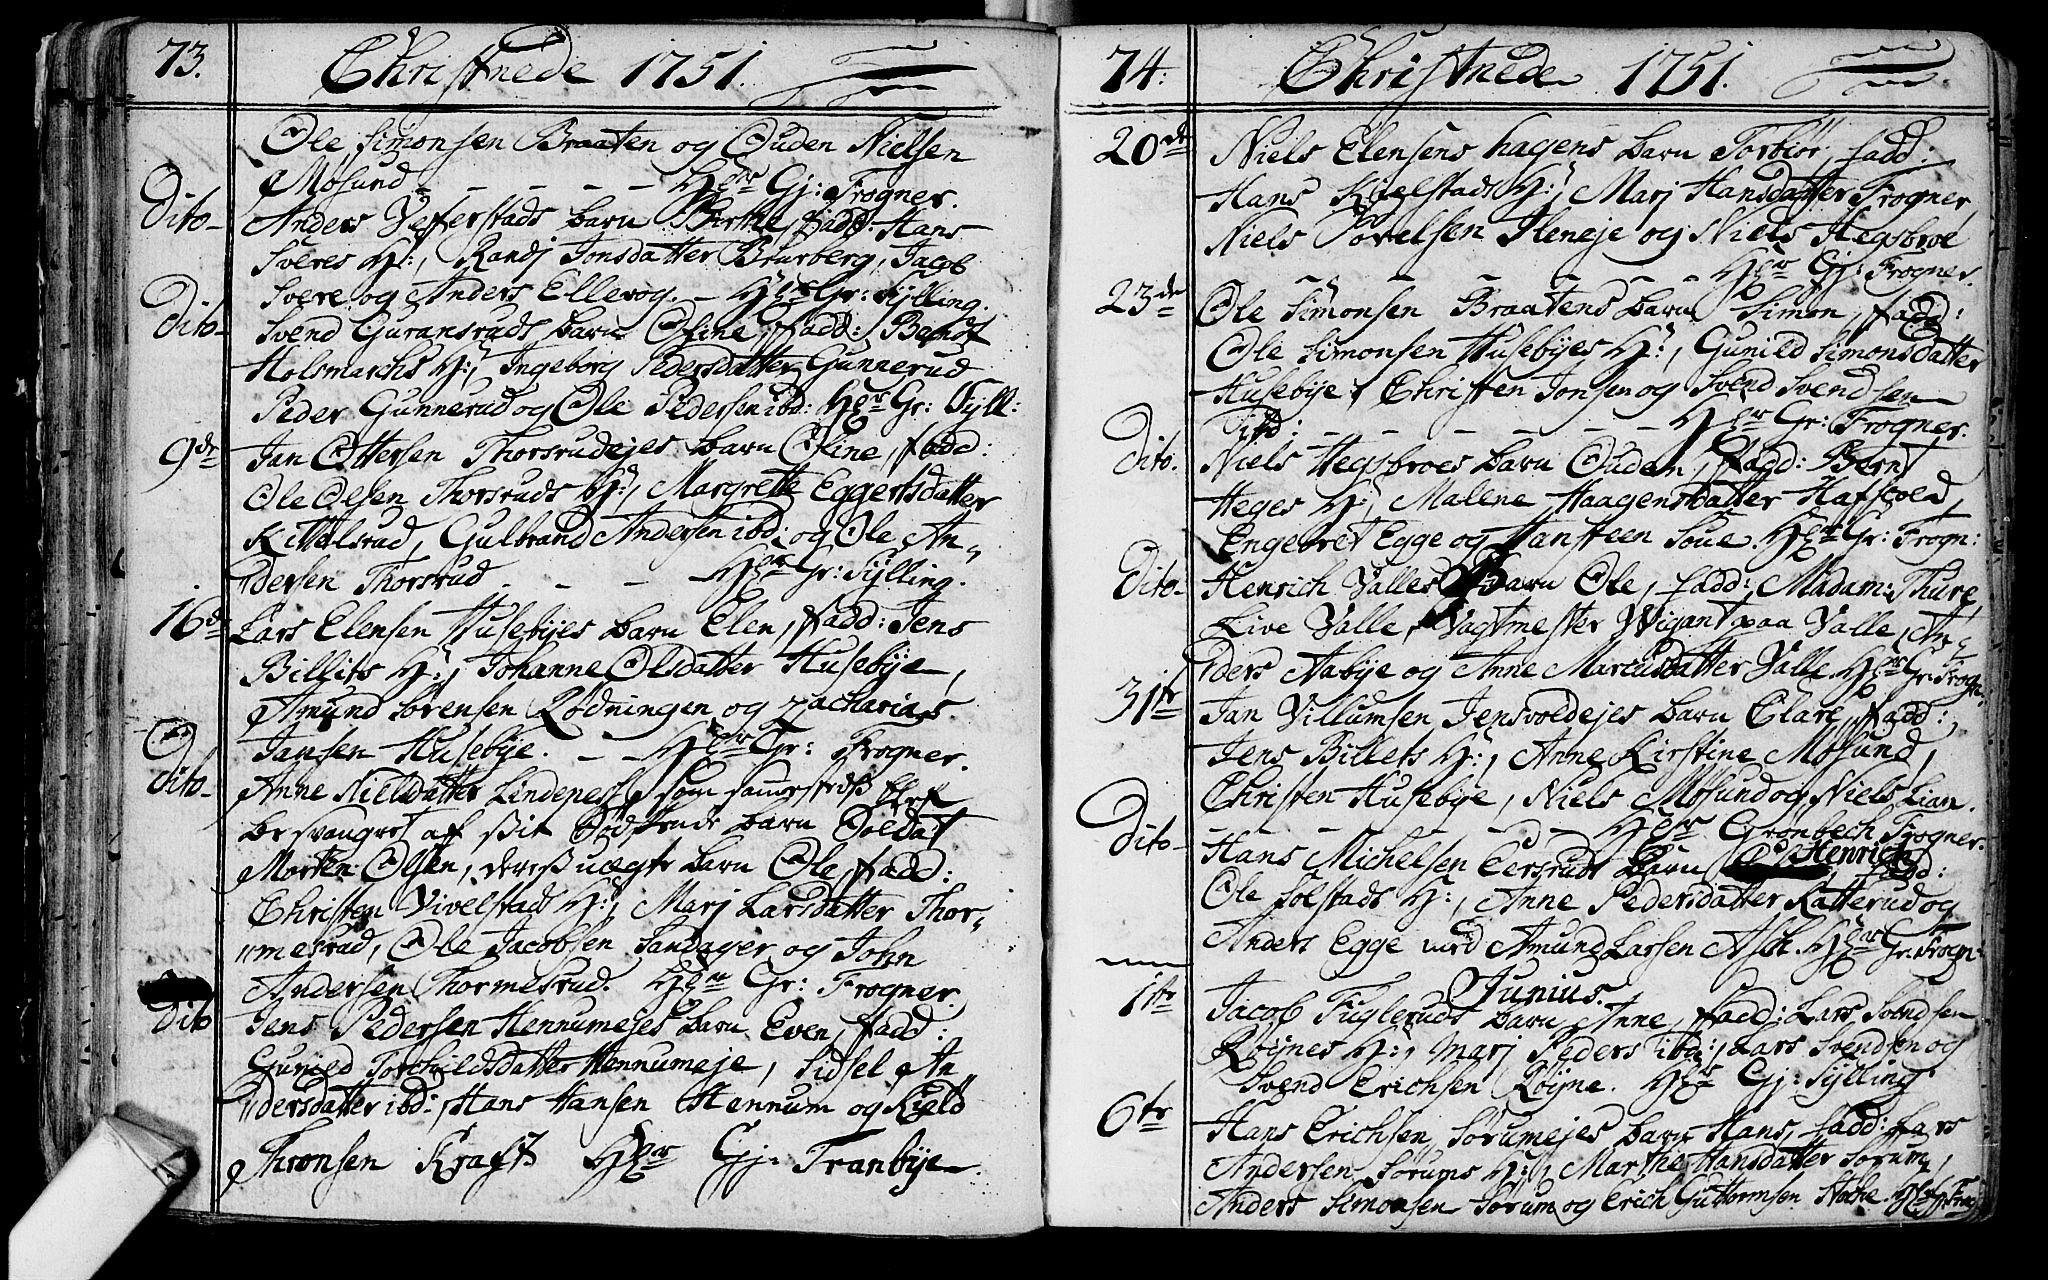 73. Christnede 1751.
Ole Simonsen Braaten og Ouden Nielsen
Mosund - - - - - Hr Gj: Frogner.
Dito- Anders Vefferstads barn Birthe, Fadd: Hans
Sveres H:, Randj Jonsdatter Brurberg, Jacob
Svere og Anders Ellevog. - Hr Gr: Sylling.
Dito- Svend Guransruds barn Oline, Fadd: Bent
Holsmarchs H:, Ingeborg Pedersdatter Gunnerud
Peder Gunnerud og Ole Pedersen ibd: Hr Gr: Syll:
9de Jan Ottersen Thorsrudejes barn Oline, Fadd:
Ole Olsen Thorsruds H:, Margrette Eggertsdatter
Kittelsrud, Gulbrand Andersen ibd: og Ole An-
"dersen Thorsrud - - - Hr Gr: Sylling.
16d Lars Elensen Husebyes barn Elen, Fadd: Jens
Billits H:, Johanne Olsdatter Husebye,
Amund Sørensen Rødningen og Zacharias
Jansen Husebye. - - Hr Gr: Frogner.
Dito- Anne Nielsdatter Lindenes, som
besvangret af sit barn Soldat
Morten Olsen, deres uægte barn Ole, Fadd:
Christen Vivelstads H:, Marj Larsdatter Thor-
"mesrud, Ole Jacobsen Sandager og John
Andersen Thormesrud. Hr Gr: Frogner.
Dito Jens Pedersen Hennumejes barn Even, Fadd:
Gunild Torchildsdatter Hennumeje, Sidsel An
"dersdatter ibd:, Hans Hansen Hennum og Kield
Thronsen Kraft Hr Gj: Tranbye.
74. Christnede 1751.
20de Niels Elensens hagens barn Torbiør, Fadd:
Hans Kiøelstads H:, Marj Hansdatter Frogner,
Niels Povelsen Heneje og Niels Hegsbroe
- - - - - Hr Gj: Frogner.
23de Ole Simonsen Braatens barn Simon, Fadd:
Ole Simonsen Husebyes H:, Gunild Simonsdatter
Husebye, Christen Jonsen og Svend Svendsen
ibd: - - - - - Hr Gr: Frogner.
Dito. Niels Hegsbroes barn Ouden, Fadd: Bernt
Heges H:, Malene Haagensdatter Hafscoed,
Engebret Egge og Hansteen Soue. Hr Gr: Frogn:
Dito- Henrich Valles barn Ole, Fadd: Madam: Thure,
Live Valle, Vagtmester Wigant paa Valle, An-
"ders Aabye og Anne Marcusdatter Valle. Hr Gr: Frogn:
31te Jan Villumsen Jensvoldejes barn Clare, Fadd:
Jens Billets H:, Anne Kirstine Mosund,
Christen Husebye, Niels Mosund og Niels Lian.
- - - - - Hr Grønbech Frogner.
Dito- Hans Michelsen Eersruds barn Henrich, Fadd:
Ole Solstads H:, Anne Pedersdatter Ratterud og
Anders Egge med Amund Larsen Ask. Hr Gr: Frogn:
Junius.
1te Jacob Fuglerud barn Anne, Fadd: Lars Svendsen
Røynes H:, Marj Peders ibd:, Lars Svendsen og
Svend Erichsen Røyne. Hr Gj: Sylling
6te Hans Erichsen Sørumejes barn Hans, Fadd: Lars
Andersen Sørums H:, Marthe Hansdatter Sørum,
Anders Simonsen Sørum og Erich Guttormsen Hr Gr: Frog